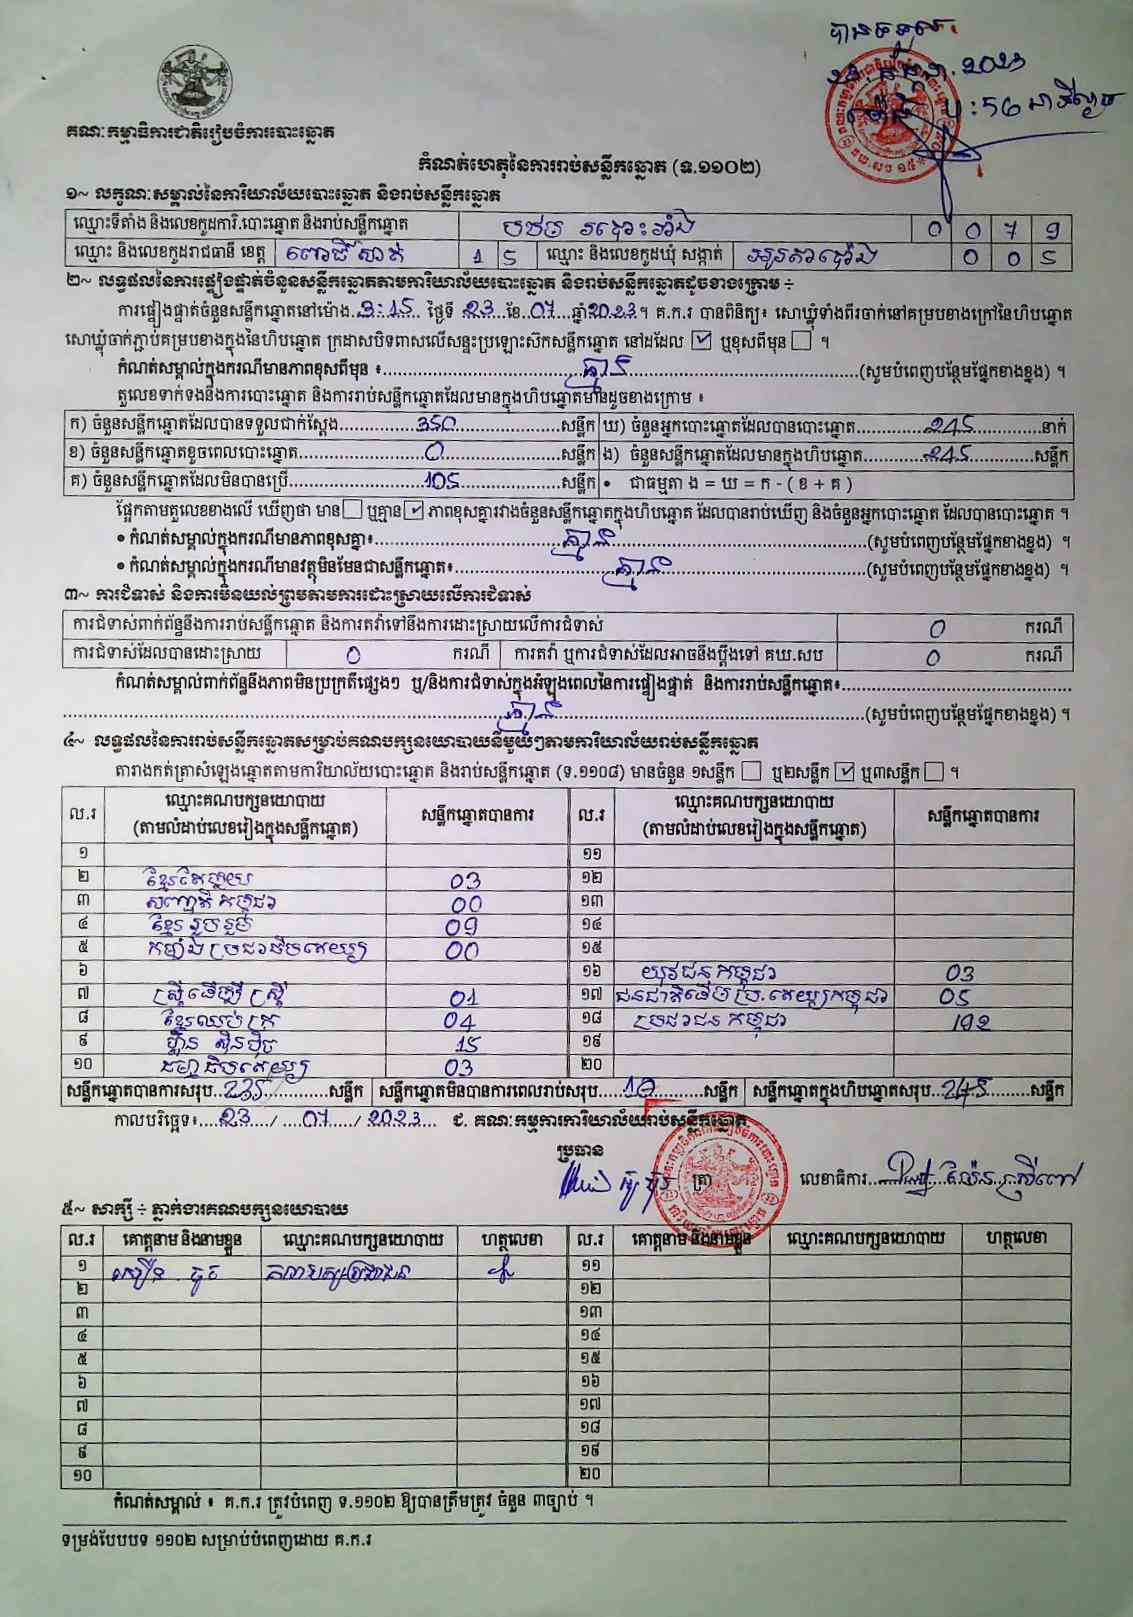 បានទទួល
គណៈកម្មាធិការជាតិរៀបចំការបោះឆ្នោត
កំណត់ហេតុនៃការរាប់សន្លឹកឆ្នោត (ទ.១១០២)
១~ លក្ខណៈសម្គាល់នៃការិយាល័យបោះឆ្នោត និងរាប់សន្លឹកឆ្នោត
ឈ្មោះទីតាំង និងលេខកូដការិ.បោះឆ្នោត និងរាប់សន្លឹកឆ្នោត 0 0 7 9
ឈ្មោះ និងលេខកូដរាជធានី ខេត្ត ពោធិ៍សាត់ 1 5 ឈ្មោះ និងលេខកូដឃុំ សង្កាត់ អូរតាប៉ោង 0 0 5
២~ លទ្ធផលនៃការផ្ទៀងផ្ទាត់ចំនួនសន្លឹកឆ្នោតតាមការិយាល័យបោះឆ្នោត និងរាប់សន្លឹកឆ្នោតដូចខាងក្រោម ÷
ការផ្ទៀងផ្ទាត់ចំនួនសន្លឹកឆ្នោតនៅម៉ោង 3:15 ថ្ងៃទី 23 ខែ 07 ឆ្នាំ 2023 ។ គ.ក.រ បានពិនិត្យ៖ សោឃ្លុំទាំងពីរចាក់នៅគម្របខាងក្រៅនៃហិបឆ្នោត
សោឃ្លុំចាក់ភ្ជាប់គម្របខាងក្នុងនៃហិបឆ្នោត ក្រដាសបិទពាសលើសន្ទះប្រឡោះស៊កសន្លឹកឆ្នោត នៅដដែល ☑ ឬខុសពីមុន ☐ ។
កំណត់សម្គាល់ក្នុងករណីមានភាពខុសពីមុន ៖ គ្មាន (សូមបំពេញបន្ថែមផ្នែកខាងខ្នង) ។
តួលេខទាក់ទងនឹងការបោះឆ្នោត និងការរាប់សន្លឹកឆ្នោតដែលមានក្នុងហិបឆ្នោតមានដូចខាងក្រោម ៖
ក) ចំនួនសន្លឹកឆ្នោតដែលបានទទួលជាក់ស្តែង 350 សន្លឹក ឃ) ចំនួនអ្នកបោះឆ្នោតដែលបានបោះឆ្នោត 245 នាក់
ខ) ចំនួនសន្លឹកឆ្នោតខូចពេលបោះឆ្នោត 0 សន្លឹក ង) ចំនួនសន្លឹកឆ្នោតដែលមានក្នុងហិបឆ្នោត 245 សន្លឹក
គ) ចំនួនសន្លឹកឆ្នោតដែលមិនបានប្រើ 105 សន្លឹក • ជាធម្មតា ង = ឃ = ក - ( ខ + គ )
ផ្អែកតាមតួលេខខាងលើ ឃើញថា មាន ☐ ឬគ្មាន ☑ ភាពខុសគ្នារវាងចំនួនសន្លឹកឆ្នោតក្នុងហិបឆ្នោត ដែលបានរាប់ឃើញ និងចំនួនអ្នកបោះឆ្នោត ដែលបានបោះឆ្នោត ។
• កំណត់សម្គាល់ក្នុងករណីមានភាពខុសគ្នា៖ គ្មាន (សូមបំពេញបន្ថែមផ្នែកខាងខ្នង) ។
• កំណត់សម្គាល់ក្នុងករណីមានវត្ថុមិនមែនជាសន្លឹកឆ្នោត៖ គ្មាន (សូមបំពេញបន្ថែមផ្នែកខាងខ្នង) ។
៣~ ការជំទាស់ និងការមិនយល់ព្រមតាមការដោះស្រាយលើការជំទាស់
ការជំទាស់ពាក់ព័ន្ធនឹងការរាប់សន្លឹកឆ្នោត និងការតវ៉ាទៅនឹងការដោះស្រាយលើការជំទាស់ 0 ករណី
ការជំទាស់ដែលបានដោះស្រាយ 0 ករណី ការតវ៉ា ឬការជំទាស់ដែលអាចនឹងប្តឹងទៅ គឃ.សប 0 ករណី
កំណត់សម្គាល់ពាក់ព័ន្ធនឹងភាពមិនប្រក្រតីផ្សេងៗ ឬ/និងការជំទាស់ក្នុងអំឡុងពេលនៃការផ្ទៀងផ្ទាត់ និងការរាប់សន្លឹកឆ្នោត៖
គ្មាន (សូមបំពេញបន្ថែមផ្នែកខាងខ្នង) ។
៤~ លទ្ធផលនៃការរាប់សន្លឹកឆ្នោតសម្រាប់គណបក្សនយោបាយនីមួយៗតាមការិយាល័យរាប់សន្លឹកឆ្នោត
តារាងកត់ត្រាសំឡេងឆ្នោតតាមការិយាល័យបោះឆ្នោត និងរាប់សន្លឹកឆ្នោត (ទ.១១០៨) មានចំនួន ១សន្លឹក ☐ ឬ២សន្លឹក ☑ ឬ៣សន្លឹក ☐ ។
ល.រ ឈ្មោះគណបក្សនយោបាយ (តាមលំដាប់លេខរៀងក្នុងសន្លឹកឆ្នោត) សន្លឹកឆ្នោតបានការ ល.រ ឈ្មោះគណបក្សនយោបាយ (តាមលំដាប់លេខរៀងក្នុងសន្លឹកឆ្នោត) សន្លឹកឆ្នោតបានការ
១ ១១
២ ខ្មែរតែមួយ 03 ១២
៣ សញ្ជាតិកម្ពុជា 00 ១៣
៤ ខ្មែររួបរួម 09 ១៤
៥ កម្លាំងប្រជាធិបតេយ្យ 00 ១៥
៦ ១៦ យុវជនកម្ពុជា 03
៧ ស្ត្រីដើម្បីស្ត្រី 01 ១៧ ជនជាតិដើមប្រ.តេយ្យកម្ពុជា 05
៨ ខ្មែរឈប់ក្រ 04 ១៨ ប្រជាជនកម្ពុជា 192
៩ ហ្វ៊ុនស៊ិនប៉ិច 15 ១៩
១០ ធម្មាធិបតេយ្យ 03 ២០
សន្លឹកឆ្នោតបានការសរុប 235 សន្លឹក សន្លឹកឆ្នោតមិនបានការពេលរាប់សរុប 10 សន្លឹក សន្លឹកឆ្នោតក្នុងហិបឆ្នោតសរុប 245 សន្លឹក
កាលបរិច្ឆេទ៖ 23 / 07 / 2023 ជ. គណៈកម្មការការិយាល័យរាប់សន្លឹកឆ្នោត
ប្រធាន
ត្រា លេខាធិការ
៥~ សាក្សី ÷ ភ្នាក់ងារគណបក្សនយោបាយ
ល.រ គោត្តនាម និងនាមខ្លួន ឈ្មោះគណបក្សនយោបាយ ហត្ថលេខា ល.រ គោត្តនាម និងនាមខ្លួន ឈ្មោះគណបក្សនយោបាយ ហត្ថលេខា
១ គណបក្សប្រជាជន ១១
២ ១២
៣ ១៣
៤ ១៤
៥ ១៥
៦ ១៦
៧ ១៧
៨ ១៨
៩ ១៩
១០ ២០
កំណត់សម្គាល់ ៖ គ.ក.រ ត្រូវបំពេញ ទ.១១០២ ឱ្យបានត្រឹមត្រូវ ចំនួន ៣ច្បាប់ ។
ទម្រង់បែបបទ ១១០២ សម្រាប់បំពេញដោយ គ.ក.រ